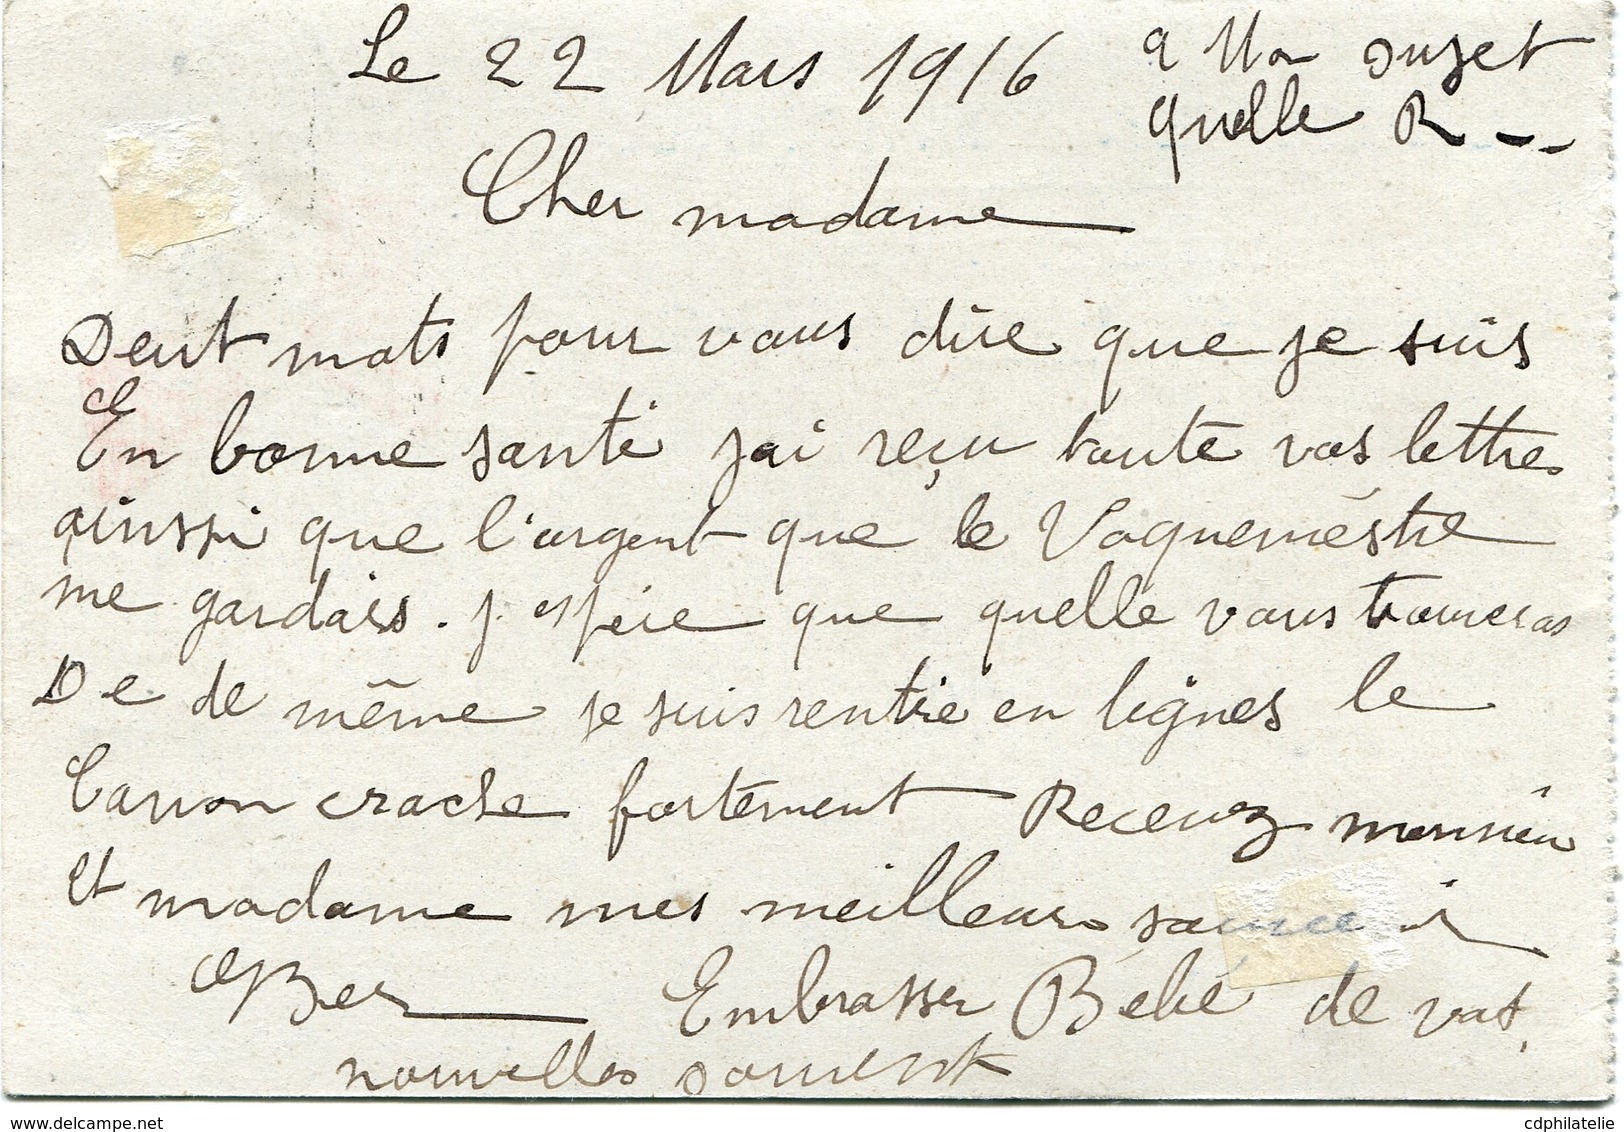 Le 22 Mars 1916
a Mon sujet
quelle R - -
Cher madame
Deut mots pour vous dire que je suis
En bonne santé j'ai reçu toute vos lettres
ainssi que l'argent que le Vaguemestre
me gardais. j'espère que quelle vous trouveras
De de même je suis rentré en lignes le
Canon crache fortement Recevez monsieu
Et madame mes meilleurs souvenir
Ber Embrasser Bébé de vos
nouvelles souvent
www.delcampe.net
cdphilatelie